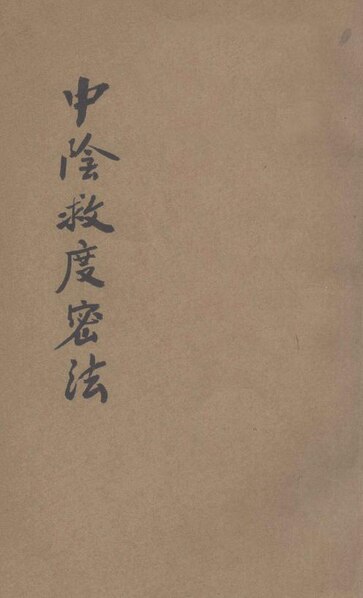 中陰救度密法